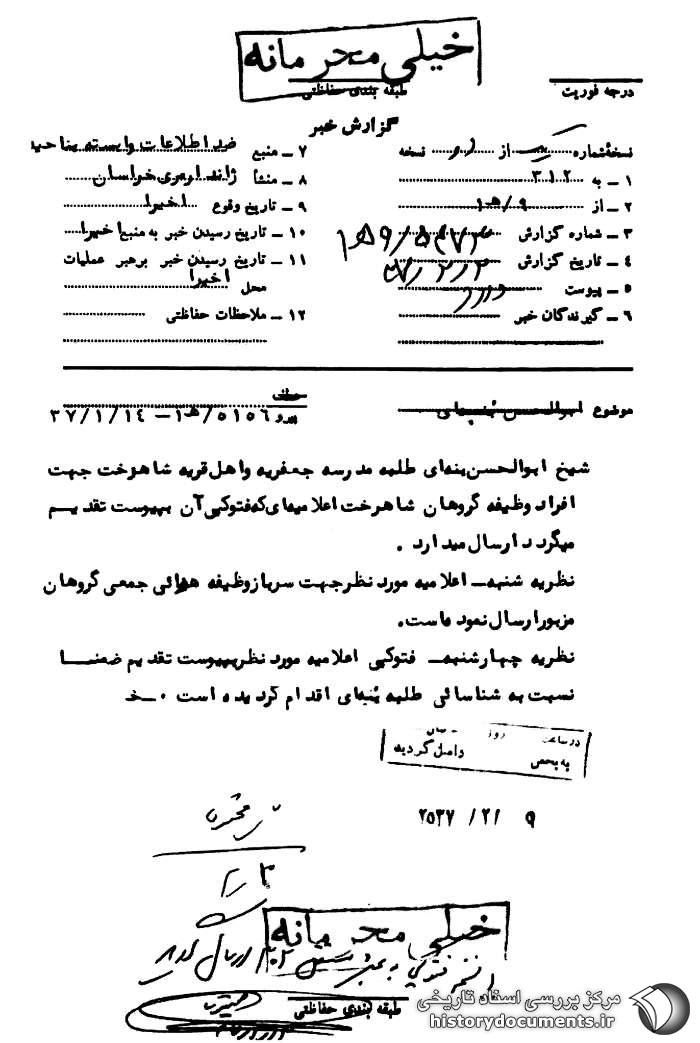 خیلی محرمانه
درجه فوریت
طبقه بندی حفاظتی
گزارش خبر
نسخهٔ شماره از نسخه
۱ ــ به ۳۱۲
۲ ــ از ۹/ﻫ۱
۳ ــ شماره گزارش
۴ ــ تاریخ گزارش ۳۷/۲/۳
۵ ــ پیوست دارد
۶ ــ گیرندگان خبر
۷ ــ منبع ضد اطلاعات وابسته بناحیه
۸ ــ منشأ ژاندارمری خراسان
۹ ــ تاریخ وقوع اخیرا
۱۰ ــ تاریخ رسیدن خبر به منبع اخیرا
۱۱ ــ تاریخ رسیدن خبر برهبر عملیات
محل اخیرا
۱۲ ــ ملاحظات حفاظتی
موضوع ابوالحسن پنبه‌ای
عطف
پیرو ۵۱۵۶/ﻫ۱ – ۳۷/۱/۱۴
شیخ ابوالحسن پنبه‌ای طلبه مدرسه جعفریه واهل قریه شاهرخت جهت
افراد وظیفه گروهان شاهرخت اعلامیه‌ای که فتوکپی آن بپیوست تقدیم
میگردد ارسال میدارد .
نظریه شنبه– اعلامیه مورد نظر جهت سرباز وظیفه هوائی جمعی گروهان
مزبور ارسال نموده است.
نظریه چهارشنبه– فتوکپی اعلامیه مورد نظر بپیوست تقدیم ضمنا
نسبت به شناسائی طلبه پنبه‌ای اقدام گردیده است ۰ خ
در ساعت روز
به بخش واصل گردید
۹ /۲/ ۲۵۳۷
خیلی محرمانه
طبقه بندی حفاظتی
مرکز بررسی اسناد تاریخی
historydocuments.ir